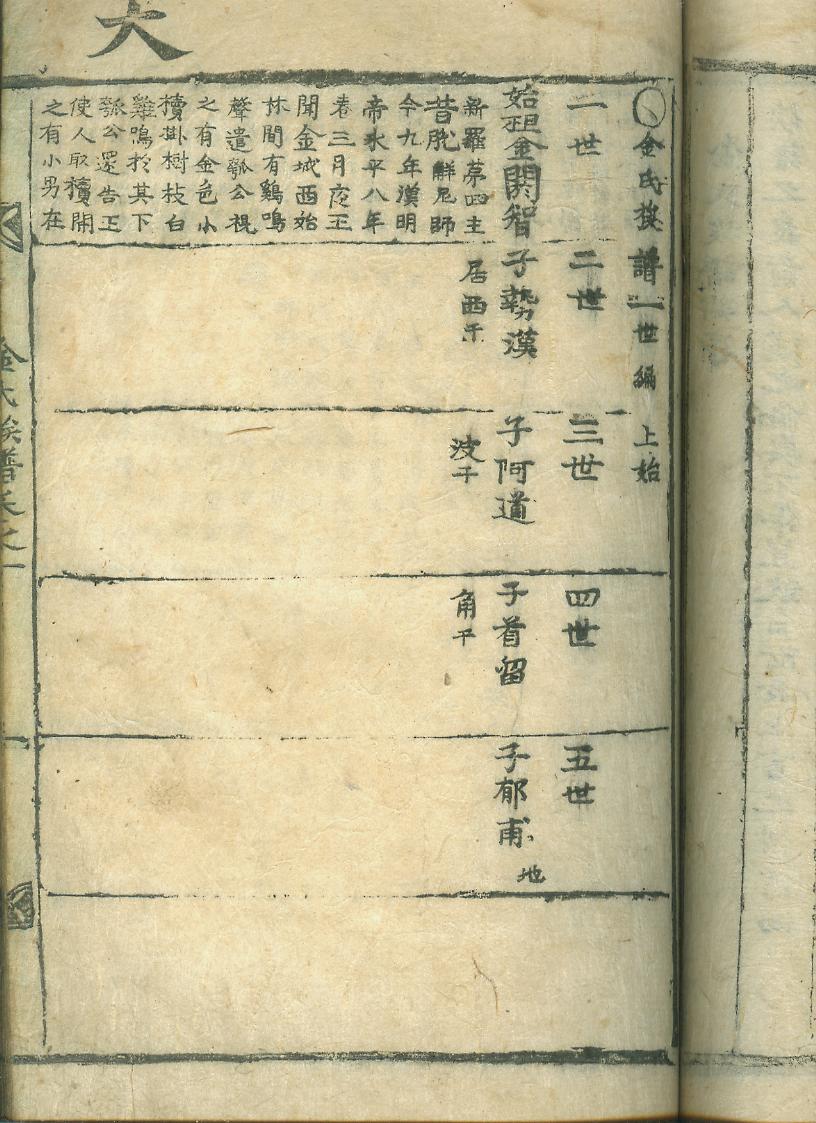 大
金氏族譜一世編 上始
一世
始祖金閼智
新羅苐四主
昔脫觧尼師
今九年漢明
帝永平八年
春三月夜王
聞金城西始
林間有鷄鳴
聲遣瓠公視
之有金色小
櫝掛樹枝白
雞鳴於其下
瓠公還告王
使人取櫝開
之有小男在
二世
子勢漢
居西干
三世
子阿道
波干
四世
子首留
角干
五世
子郁甫
地
金氏族譜卷之一